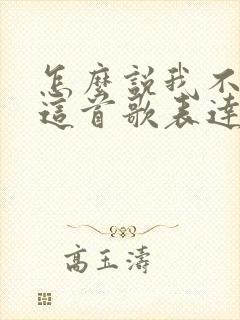 怎麼說我不
這首歌表達
高玉濤